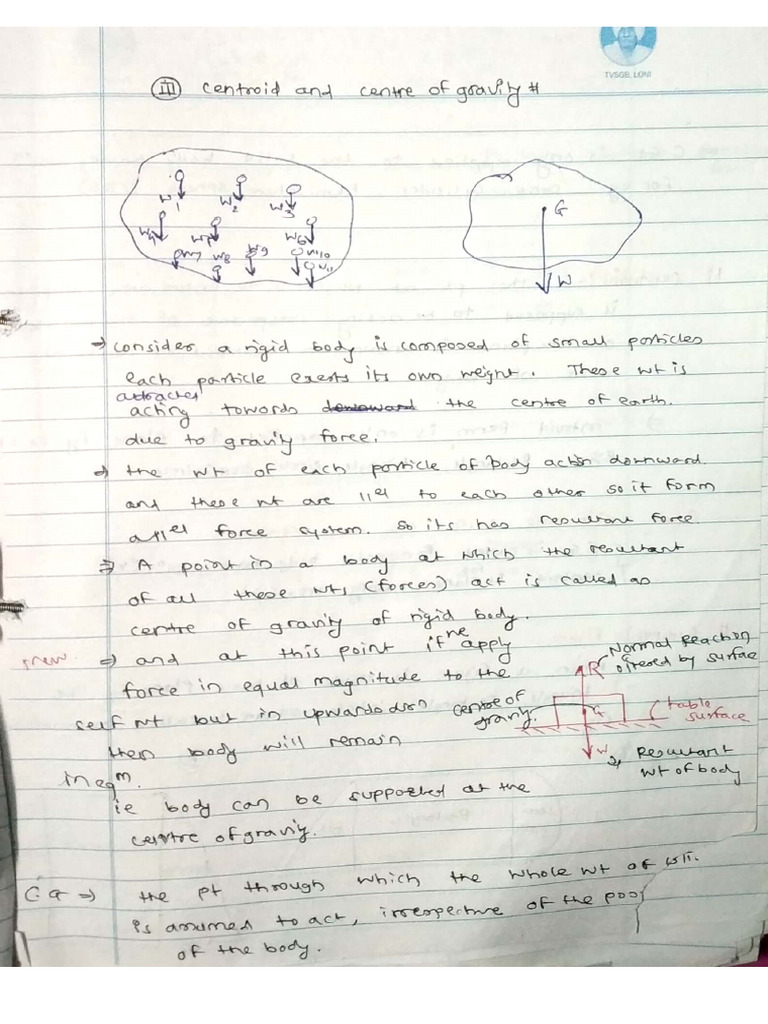 TVSGB, LONI
III centroid and centre of gravity #
W1 W2 W3
W4 W5 W6
W7 W8 W9 W10
W11
G
W
→ consider a rigid body is composed of small particles
each particle exerts its own weight. These wt is
attracted
acting towards downward the centre of earth.
due to gravity force.
⇒ the wt of each particle of body action downward.
and these wt are 11el to each other so it form
a 11el force system. so its has resultant force.
⇒ A point in a body at which the resultant
of all these wts (forces) act is called as
centre of gravity of rigid body.
⇒ and at this point if we apply
force in equal magnitude to the
self wt but in upward dirn
then body will remain
in eqm.
ie body can be supported at the
centre of gravity.
R Normal Reaction
offered by surface
centre of
gravity.
G
table
surface
W
Resultant
wt of body
C.G ⇒ the pt through which the whole wt of
is assumed to act, irrespective of the
of the body.